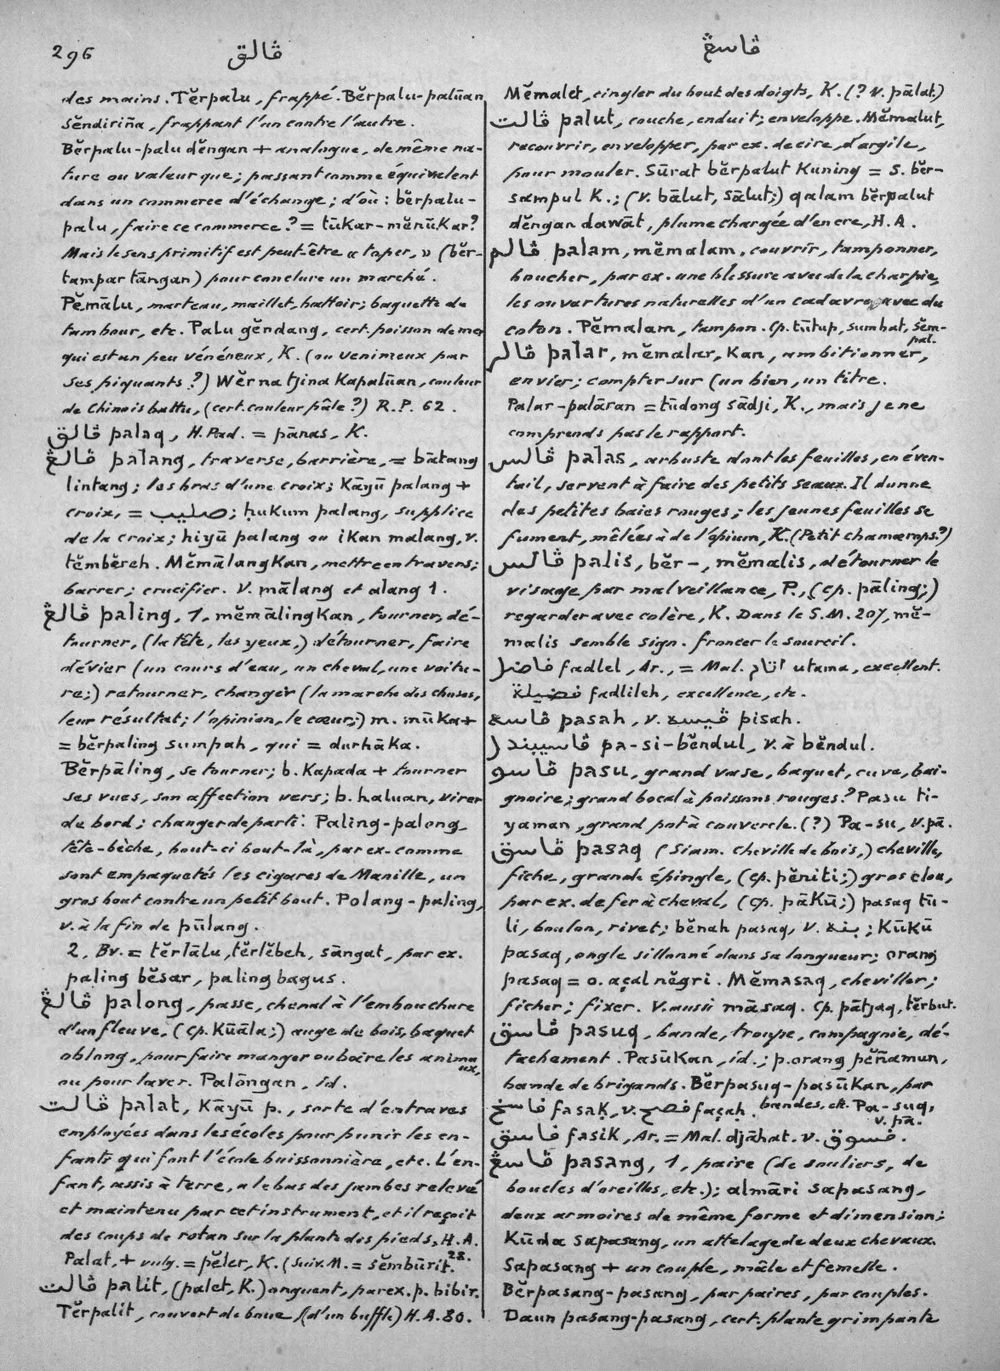 296
ڤالق
ڤاسڠ
des mains. Tĕrpalu, frappé. Bĕrpalu-palūan
sĕndiriña, frappant l'un contre l'autre.
Bĕrpalu-palu dĕngan + analogue, de même na-
ture ou valeur que; passant comme équivalent
dans un commerce d'échange; d'où: bĕrpalu-
palu, faire ce commerce? = tūkar-mĕnūkar?
Mais le sens primitif est peut-être « taper, » (bĕr-
tampar tāngan) pour conclure un marché.
Pĕmālu, marteau, maillet, battoir; baguette de
tambour, etc. Palu gĕndang, cert. poisson de mer
qui est un peu vénéneux, K. (ou venimeux par
ses piquants?) Wĕrna tjina kapalūan, couleur
de Chinois battu, (cert. couleur pâle?) R.P. 62.
ڤالق palaq, H. Pad. = pānas, K.
ڤالڠ pālang, traverse, barrière, = bātang
lintang; les bras d'une croix; kāyū palang +
croix, = صليب; ḥukum palang, supplice
de la croix; hiyū palang ou ikan malang, v.
tĕmbĕreh. Mĕmālangkan, mettre en travers;
barrer; crucifier. V. mālang et alang 1.
ڤالڠ paling, 1, mĕmālingkan, tourner, dé-
tourner, (la tête, les yeux,) détourner, faire
dévier (un cours d'eau, un cheval, une voitu-
re;) retourner, changer (la marche des choses,
leur résultat; l'opinion, le cœur;) m. mūka +
= bĕrpaling sumpah, qui = durhāka.
Bĕrpāling, se tourner; b. kapada + tourner
ses vues, son affection vers; b. haluan, virer
de bord; changer de parti. Paling-palong,
tête-bèche, bout-ci bout-là, par ex. comme
sont empaquetés les cigares de Manille, un
gros bout contre un petit bout. Polang-paling,
v. à la fin de pūlang.
2, Bv. = tĕrlālu, tĕrlĕbeh, sāngat, par ex.
paling bĕsar, paling bagus.
ڤالڠ palong, passe, chenal à l'embouchure
d'un fleuve, (cp. Kūāla;) auge de bois, baquet
oblong, pour faire manger ou boire les animaux,
ou pour laver. Palōngan, id.
ڤالت palat, Kāyū p., sorte d'entraves
employées dans les écoles pour punir les en-
fants qui font l'école buissonnière, etc. L'en-
fant, assis à terre, a le bas des jambes relevé
et maintenu par cet instrument, et il reçoit
des coups de rotan sur la plante des pieds, H.A. 28.
Palat, + vulg. = pĕler, K. (suiv. M. = sĕmbūrit.
ڤالت palit, (palet, K.) onguent, par ex. p. bibir.
Tĕrpalit, couvert de boue, (d'un buffle) H.A. 80.
Mĕmalet, cingler du bout des doigts, K. (? v. pālat.)
ڤالت palut, couche, enduit; enveloppe. Mĕmalut,
recouvrir, envelopper, par ex. de cire, d'argile,
pour mouler. Sūrat bĕrpalut kuning = s. bĕr-
sampul K.; (v. bālut, sālut;) qalam bĕrpalut
dĕngan dawāt, plume chargée d'encre, H.A.
ڤالم palam, mĕmalam, couvrir, tamponner,
boucher, par ex. une blessure avec de la charpie,
les ouvertures naturelles d'un cadavre avec du
coton. Pĕmalam, tampon. Cp. tūtup, sumbat, sĕm-
pal.
ڤالر palar, mĕmalar, kan, ambitionner,
envier; compter sur (un bien, un titre.
Palar-palāran = tūdong sādji, K., mais je ne
comprends pas le rapport.
ڤالس palas, arbuste dont les feuilles, en éven-
tail, servent à faire des petits seaux. Il donne
des petites baies rouges; les jeunes feuilles se
fument, mêlées à de l'opium, K. (Petit chamærops?)
ڤالس palis, bĕr-, mĕmalis, détourner le
visage par malveillance, P., (cp. pāling;)
regarder avec colère, K. Dans le S.M. 207, mĕ-
malis semble sign. froncer le sourcil.
فاضل fadlel, Ar., = Mal. اتام utama, excellent.
فضيلة fadlileh, excellence, etc.
ڤاسه pasah, v. ڤيسه pisah.
ڤاسيبندل pa-si-bĕndul, v. à bĕndul.
ڤاسو pasu, grand vase, baquet, cuve, bai-
gnoire; grand bocal à poissons rouges? Pasu ti-
yaman, grand pot à couvercle. (?) Pa-su, v. pā.
ڤاسق pasaq (Siam. cheville de bois,) cheville,
fiche, grande épingle, (cp. pĕniti;) gros clou,
par ex. de fer à cheval, (cp. pākū;) pasaq tū-
li, boulon, rivet; bĕnah pasaq, v. بنه; kūkū
pasaq, ongle sillonné dans sa longueur; orang
pasaq = o. açal nĕgri. Mĕmasaq, cheviller;
ficher; fixer. V. aussi māsaq. Cp. pātjaq, tĕrbut.
ڤاسق pasuq, bande, troupe, compagnie, dé-
tachement. Pasūkan, id.; p. orang pĕñamun,
bande de brigands. Bĕrpasuq-pasūkan, par
bandes, etc. Pa-suq, v. pā.
فاسخ fasaḳ, v. فصح façaḥ.
فاسق fasik, Ar. = Mal. djāhat. v. فسوق.
ڤاسڠ pasang, 1, paire (de souliers, de
boucles d'oreilles, etc.); almāri sapasang,
deux armoires de même forme et dimension;
Kūda sapasang, un attelage de deux chevaux.
Sapasang + un couple, mâle et femelle.
Bĕrpasang-pasang, par paires, par couples.
Daun pasang-pasang, cert. plante grimpante